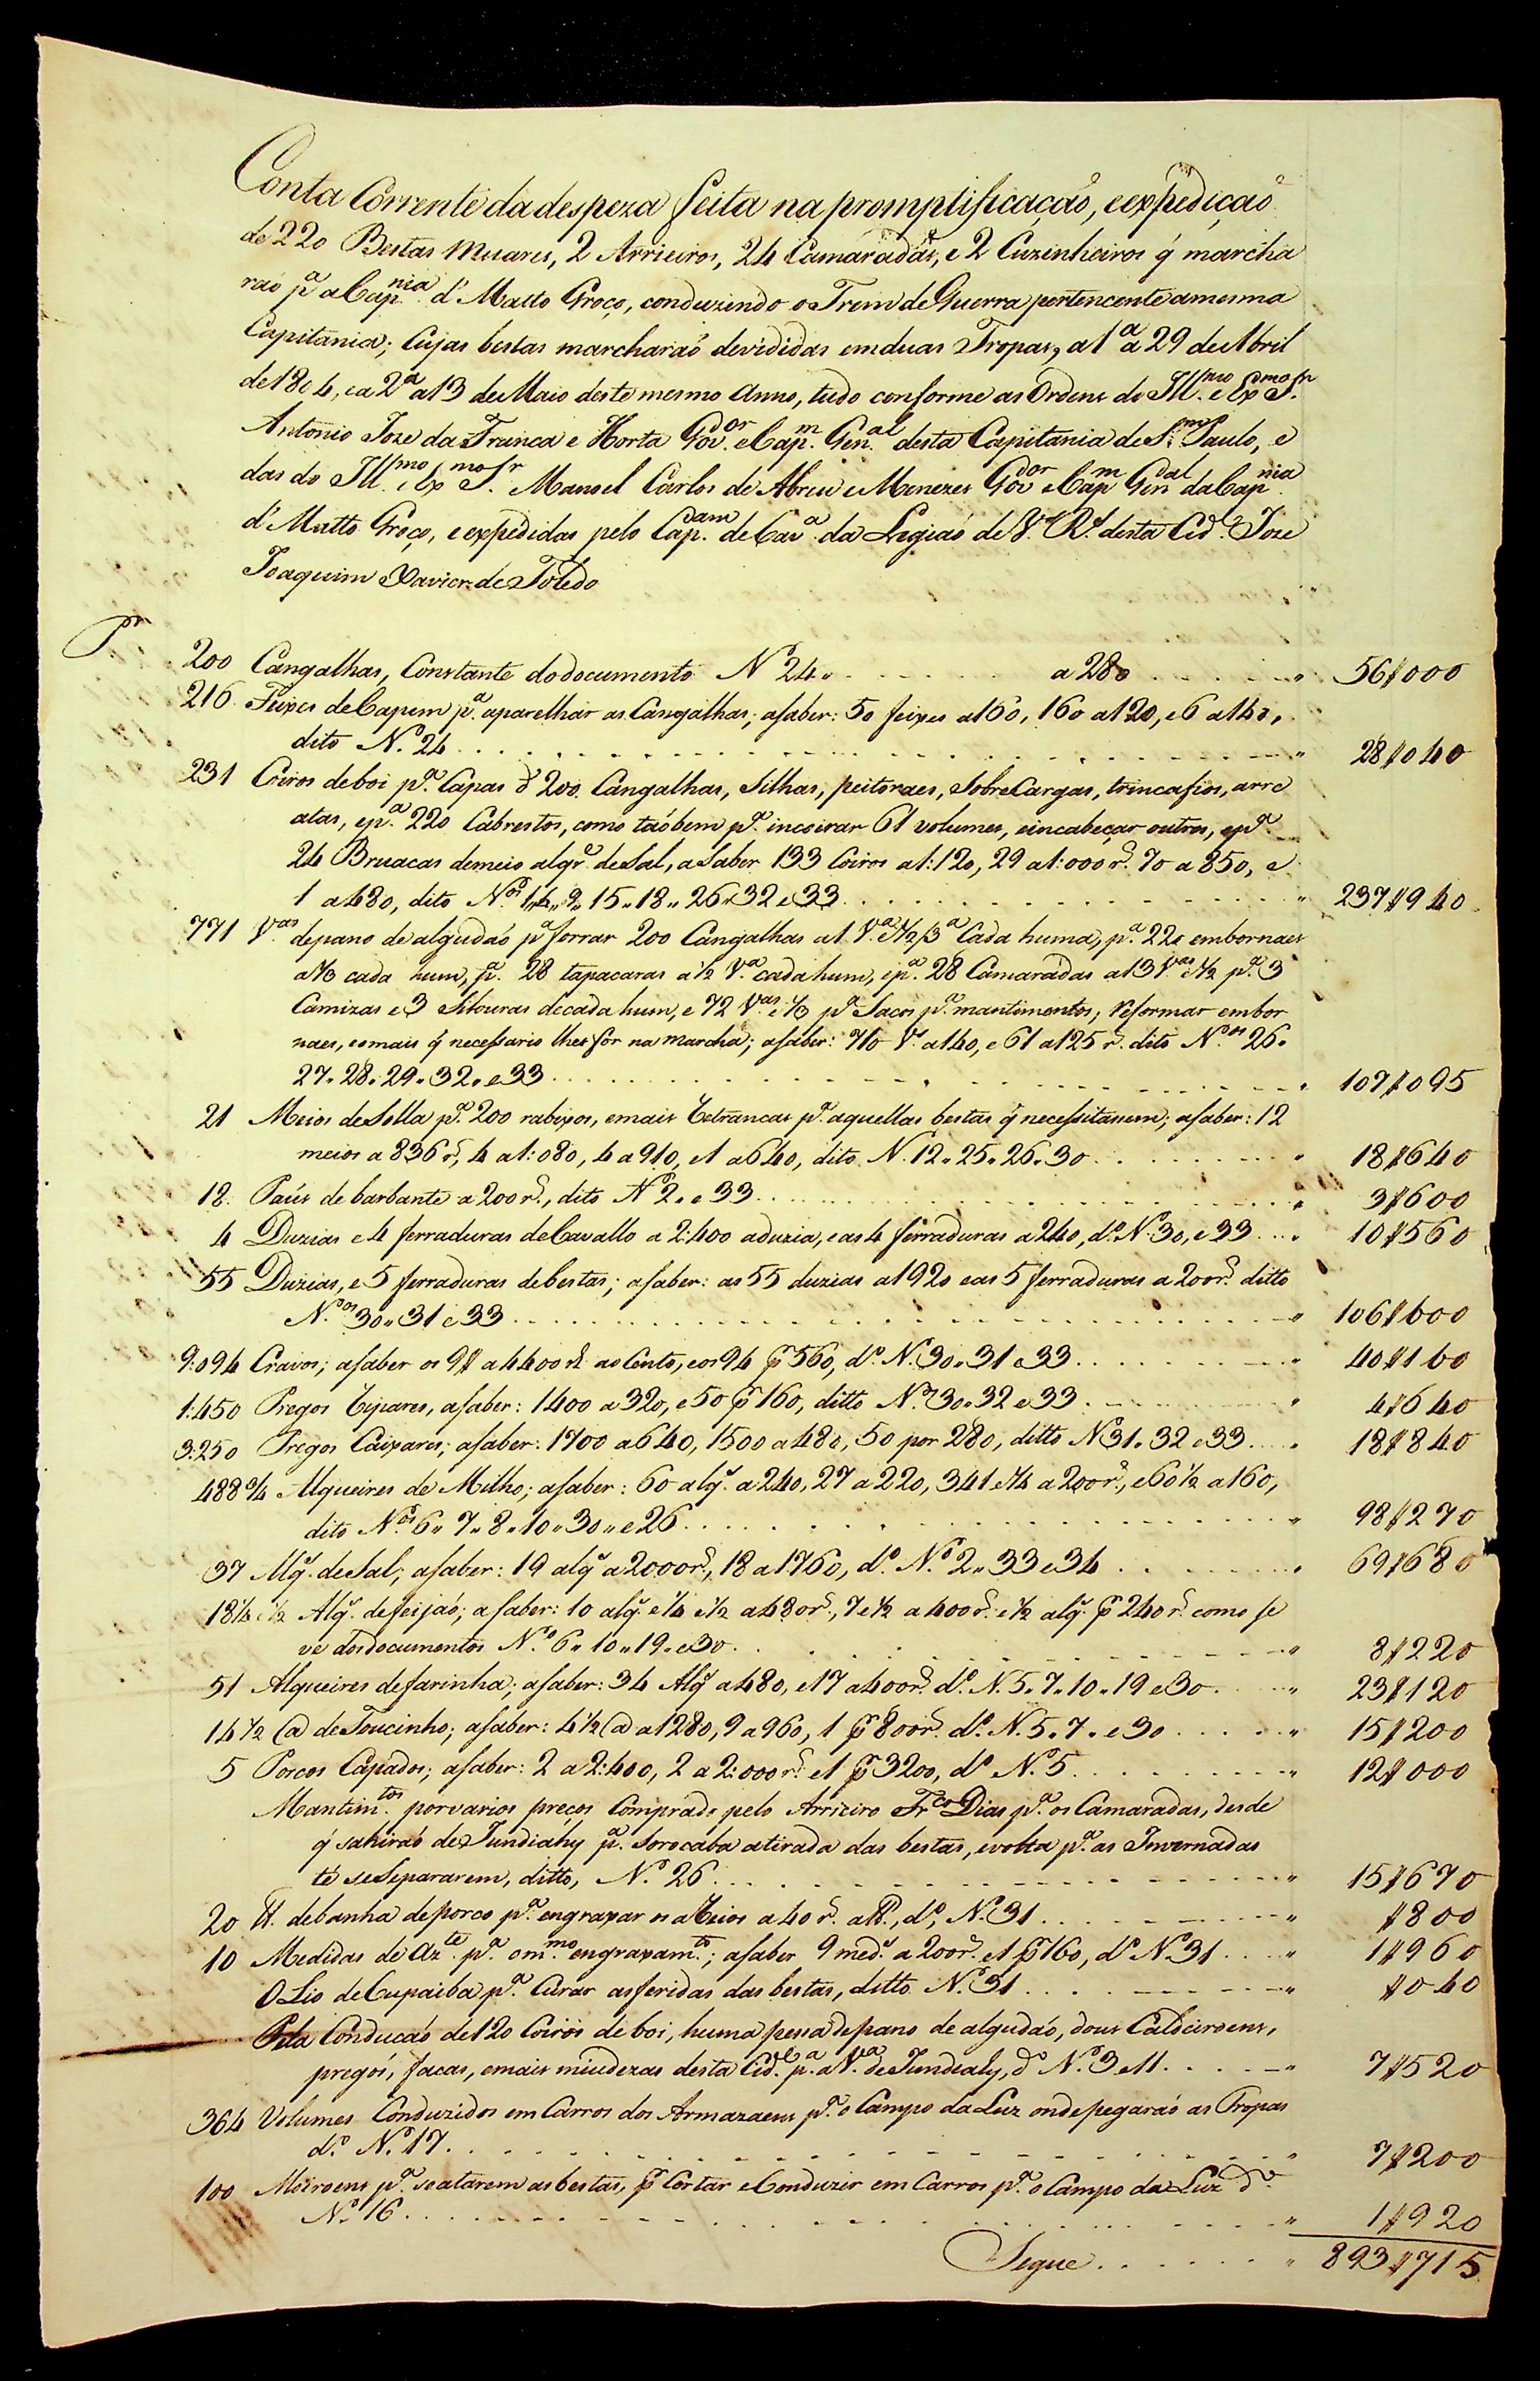 Conta Corrente da despeza feita na promptificação, e expedição
de 220 Bestas Muares, 2 Arrieiros, 24 Camaradas, e 2 Cuzinheiros q̃ marcha
rão p.ª a Cap.nia d' Matto Groço, conduzindo o Trem de Guerra pertencente a mesma
Capitania; Cujas bestas marcharaõ devididas em duas Tropas, a 1ª a 29 de Abril
de 1804, e a 2ª a 13 de Maio deste mesmo anno, tudo conforme as Ordens do Ill.mo e Ex.mo S.r
Antonio Joze da Franca e Horta Gov.or e Cap.m Gen.al desta Capitania de S.m Paulo, e
das do Ill.mo e Ex.mo S.r Manoel Carlos de Abreu e Menezes Gov.dor e Cap.m Gen.al da Cap.nia
d' Matto Groço, e expedidas pelo Cap.am de Cav.ª da Legiaõ de V. R. desta Cid.e Joze
Joaquim Xavier de Toledo
P.r
200 Cangalhas, Constante do documento N.º 24 a 280 56$000
216 Feixes de Capem p.ª aparelhar as Cangalhas; a saber: 50 feixes a 160, 160 a 120, e 6 a 140,
dito N.º 24 28$040
231 Coiros de boi p.ª Capas d 200 Cangalhas, Silhas, peitoraes, Sobre Cargas, trincafios, arre
atas, e p.ª 220 Cabrestos, como taõbem p.ª incoirar 61 volumes, e incabeçar outros, e p.ª
24 Bruacas de meio alq.re de Sal, a Saber 133 Coiros a 1:120, 29 a 1:000 r.s 70 a 850, e
1 a 480, dito N.os 1, 4, 9, 15, 18, 26, 32 e 33 237$940
771 V.as de pano de algudaõ p.ª forrar 200 Cangalhas a 1 V.ª e 1/2 /3ª Cada huma, p.ª 220 embornaes
a 1/3 cada hum, p.ª 28 tapacaras a 1/2 V.ª cada hum, e p.ª 28 Camaradas a 13 V.as e 1/2 p.ª 3
Camizas e 3 Silouras de cada hum, e 72 V.as e 1/3 p.ª Sacos p.ª mantimentos, reformar embor
naes, e o mais q̃ necessario lhes for na marcha; a saber: 710 V.s a 140, e 61 a 125 r.s dito N.os 26,
27, 28, 29, 32, e 33 107$095
21 Meios de Solla p.ª 200 rabixos, e mais Retrancas p.ª aquellas bestas q̃ necessitassem; a saber: 12
meios a 836 r.s, 4 a 1:080, 4 a 910, e 1 a 640, dito N. 12, 25, 26, 30 18$640
18 Paús de barbante a 200 r.s, dito N.º 2, e 33 3$600
4 Duzias e 4 ferraduras de Cavallo a 2:400 a duzia, e as 4 ferraduras a 240, d.º N.º 30, e 33 10$560
55 Duzias, e 5 ferraduras de bestas; a saber: as 55 duzias a 1920 e as 5 ferraduras a 200 r.s ditto
N.os 30, 31 e 33 106$600
9:094 Cravos; a saber os 9$ a 4400 r.s ao Cento, e os 94 p.r 560, d.º N.º 30, 31 e 33 40$160
1:450 Pregos Ripares, a saber: 1400 a 320, e 50 p.r 160, ditto N.º 30, 32 e 33 4$640
3:250 Pregos Caixares; a saber: 1700 a 640, 1500 a 480, 50 por 280, ditto N 31, 32 e 33 18$840
488 3/4 Alqueires de Milho; a saber: 60 alq.s a 240, 27 a 220, 341 e 1/4 a 200 r.s, e 60 1/2 a 160,
dito N.os 6, 7, 8, 10, 30, e 26 98$270
37 Alq.s de Sal; a saber: 19 alq.s a 2000 r.s, 18 a 1760, d.º N.º 2, 33 e 34 69$680
18 1/4 e 1/2 Alq.s de feijaõ; a saber: 10 alq.s e 1/4 e 1/2 a 480 r.s, 7 e 1/2 a 400 r.s e 1/2 alq.s p.r 240 r.s como se
vê dos documentos N.º 6, 10, 19, e 30 8$220
51 Alqueires de farinha; a saber: 34 Alq.s a 480, e 17 a 400 r.s d.º N. 5, 7, 10, 19 e 30 23$120
14 1/2 @ de Toucinho; a saber: 4 1/2 @ a 1280, 9 a 960, 1 p.r 800 r.s d.º N. 5, 7, e 30 15$200
5 Porcos Capados; a saber: 2 a 2:400, 2 a 2:000 r.s e 1 p.r 3200, d.º N.º 5 12$000
Mantim.tos por varios preços Comprado pelo Arrieiro Fr.co Dias p.ª os Camaradas, desde
q̃ sahiraõ de Jundiahy p.ª Sorocaba a tirada das bestas, e volta p.ª as Invernadas
té se Separarem, ditto, N.º 26 15$670
20 ℔. de banha de porco p.ª engraxar os aReios a 40 r.s a ℔., d.º, N.º 31 $800
10 Medidas de Az.te p.ª o m.mo engraxam.to; a saber 9 med.s a 200 r.s e 1 p.r 160, d.º N.º 31 1$960
OLio de Cupaiba p.ª Curar as feridas das bestas, ditto N.º 31 $040
Pela Conducaõ de 120 Coiros de boi, huma pessa de pano de algudaõ, dous Caldeiroens,
pregos, facas, e mais miudezas desta Cid.e p.ª a V.ª de Jundiahy, d.º N.º 3 e 11 7$520
364 Volumes Conduzidos em Carros dos Armazaens p.ª o Campo da Luz onde pegaraõ as Tropas
d.º N.º 17 7$200
100 Moiroens p.ª se atarem as bestas, p.r Cortar e Conduzir em Carros p.ª o Campo da Luz d.º
N.º 16 1$920
Segue 893$715